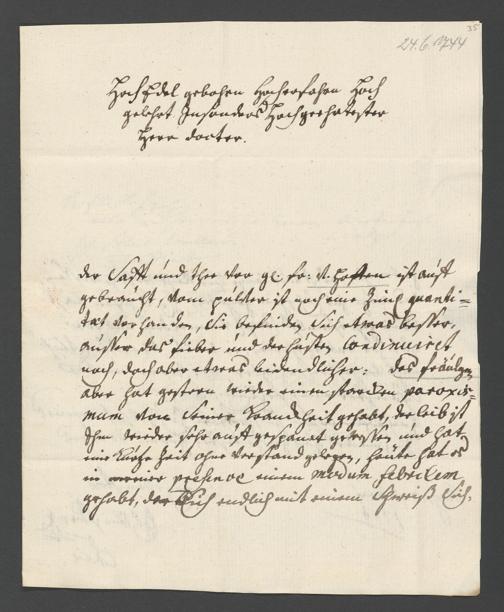 35
24.6.1744
HochEdel gebohrn Hocherfahrn Hoch
gelehrt Insonders Hochgeehrtester
Herr doctor.
der Safft und Thee vor fr: v. Hafften ist auff
gebraucht, vom pulver ist noch eine Zimb quanti=
tæt vorhanden, Sie befinden Sich etwas besser,
ausser das fieber und der husten Condinuiret
noch, doch aber etwas leidendlicher: das
aber hat gestern wieder einen starcken paroxis=
mum von Seiner Kranckheit gehabt, der leib ist
Ihm wieder sehr auff gespant gewessen und hat
eine Kurtze Zeit ohne Verstand gelegen, heute hat es
in meiner presence einen modum febrilem
gehabt, der Sich endlich mit einem Schweiß Sich